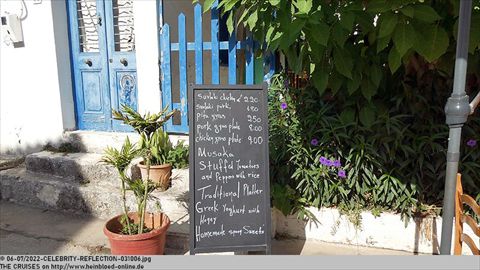 suvlaki chicken 2.20
suvlaki pork 1.80
pita gyros 2.50
pork gyros plate 8.00
chicken gyros plate 9.00
Musaka
Stuffed Tomatoes
and Peppers with rice
Traditional Platter
Greek Yoghurt with
Honey
Homemade spoon Sweets
© 06-07/2022-CELEBRITY-REFLECTION-031006.jpg
THE CRUISES on http://www.heinbloed-online.de